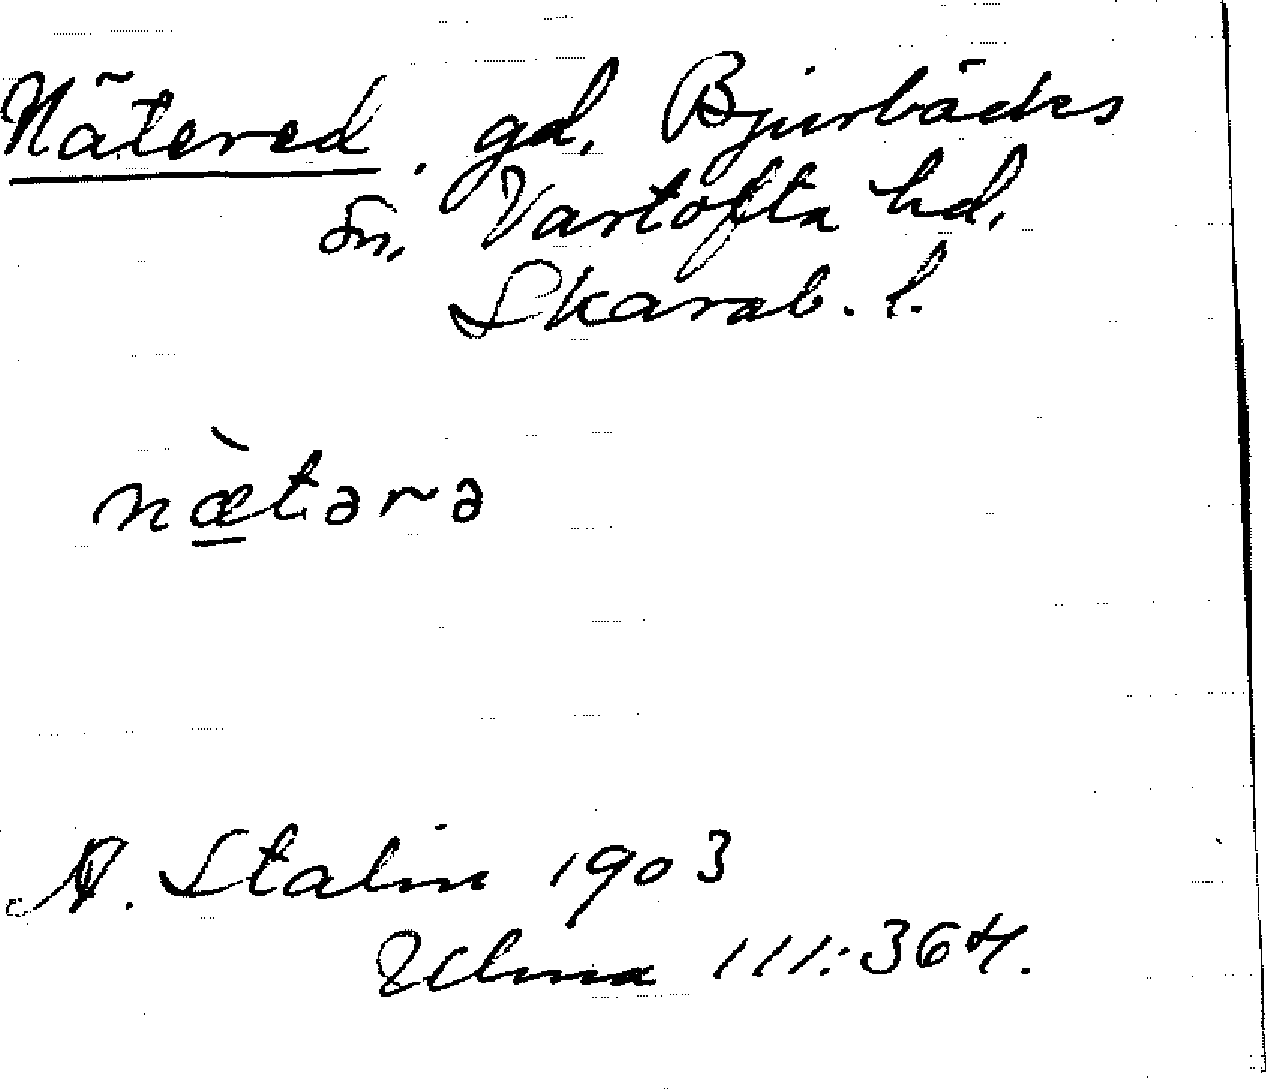 Nätered. gd. Bjurbäcks
sn. Vartofta hd.
Skarab. l.
næ̀tərə
A. Stalin 1903
Ulma 111:364.